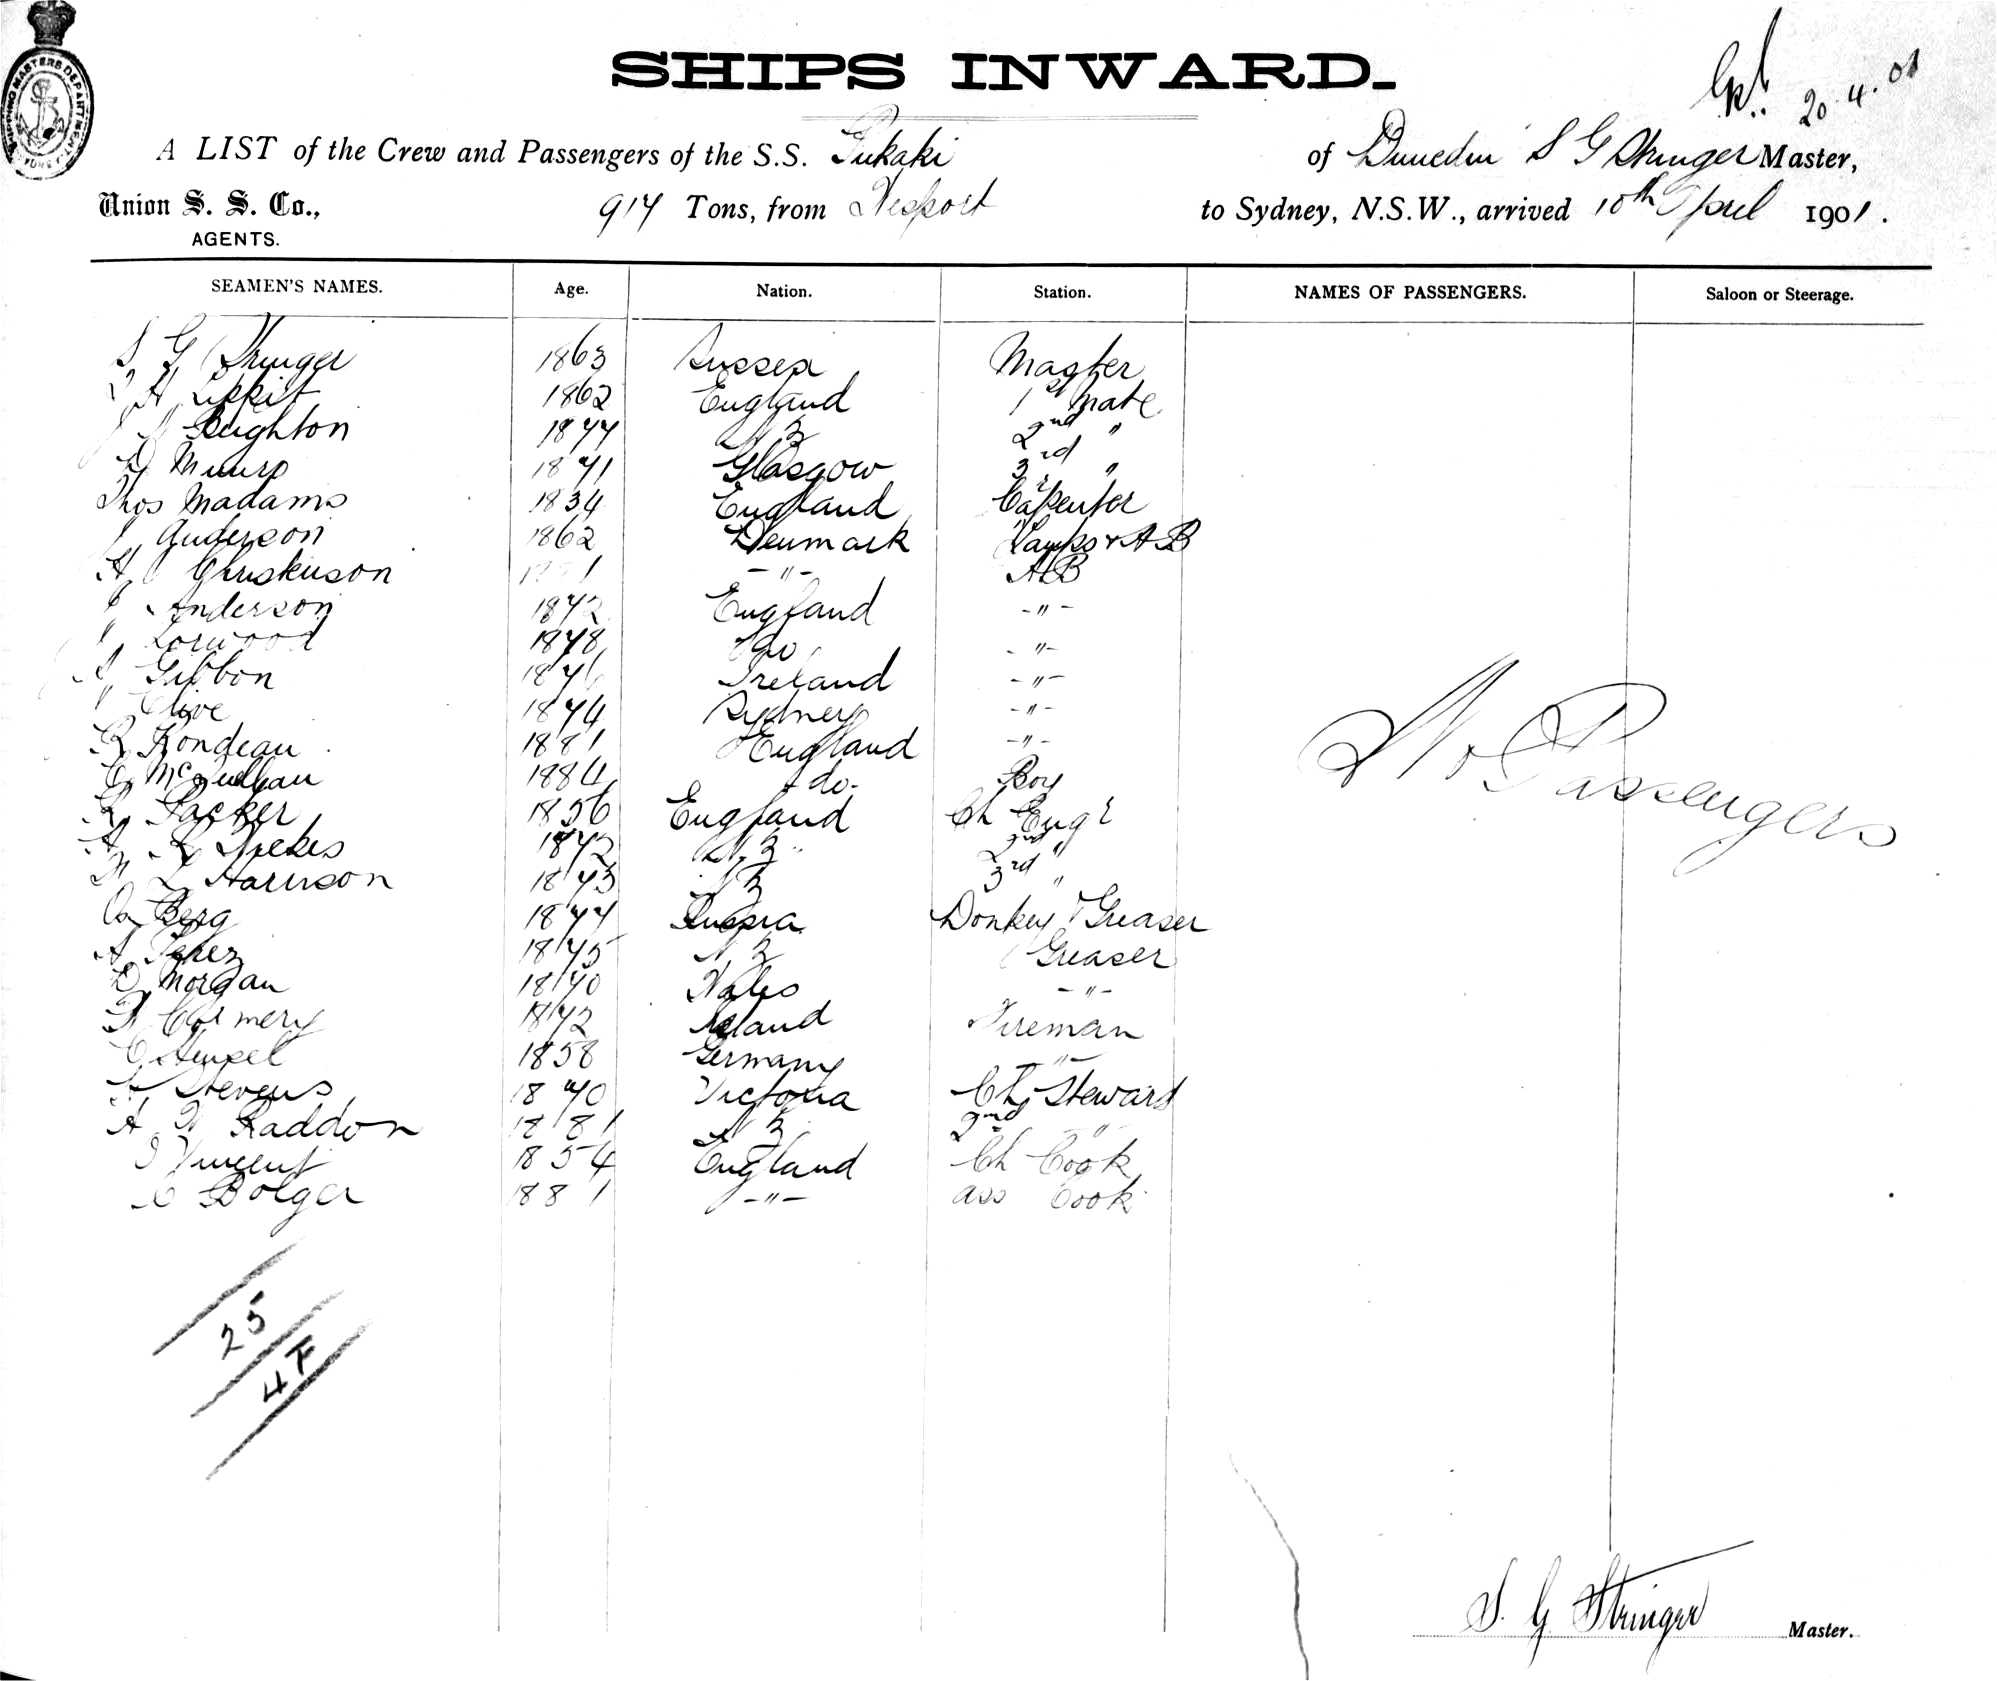 SHIPS INWARD.
20.4.01
A LIST of the Crew and Passengers of the S.S. Pukaki of Dunedin S G Stringer Master,
Union S. S. Co., 917 Tons, from Westport to Sydney, N.S.W., arrived 10th April 1901.
AGENTS.
SEAMEN'S NAMES. Age. Nation. Station. NAMES OF PASSENGERS. Saloon or Steerage.
S G Stringer 1863 Sussex Master
H Lippit 1862 England 1st Mate
Beighton 1877 N Z 2nd "
D Munro 1871 Glasgow 3rd "
Thos Madams 1834 England Carpenter
Anderson 1862 Denmark Lamps & AB
H Christenson - " - AB
Anderson 1872 England - " -
Norwood 1878 Do - " -
Gibbon 187 Ireland - " -
Clive 1874 Sydney - " -
R Rondeau 1881 England - " -
McQuillan 1884 do. Boy
R Packer 1856 England Ch Engr
1872 N.Z 2nd "
Harrison 1873 N Z 3rd "
Berg 1877 Russia Donkey & Greaser
A 1875 N Z Greaser
D Morgan 1870 Wales - " -
1872 Ireland Fireman
C Hensel 1858 Germany - " -
Stevens 1870 Victoria Ch Steward
A W Raddon 1881 N Z 2nd - " -
Vincent 1854 England Ch Cook
C Bolger 1881 - " - ass Cook
No Passengers
25
4F
S. G Stringer Master.